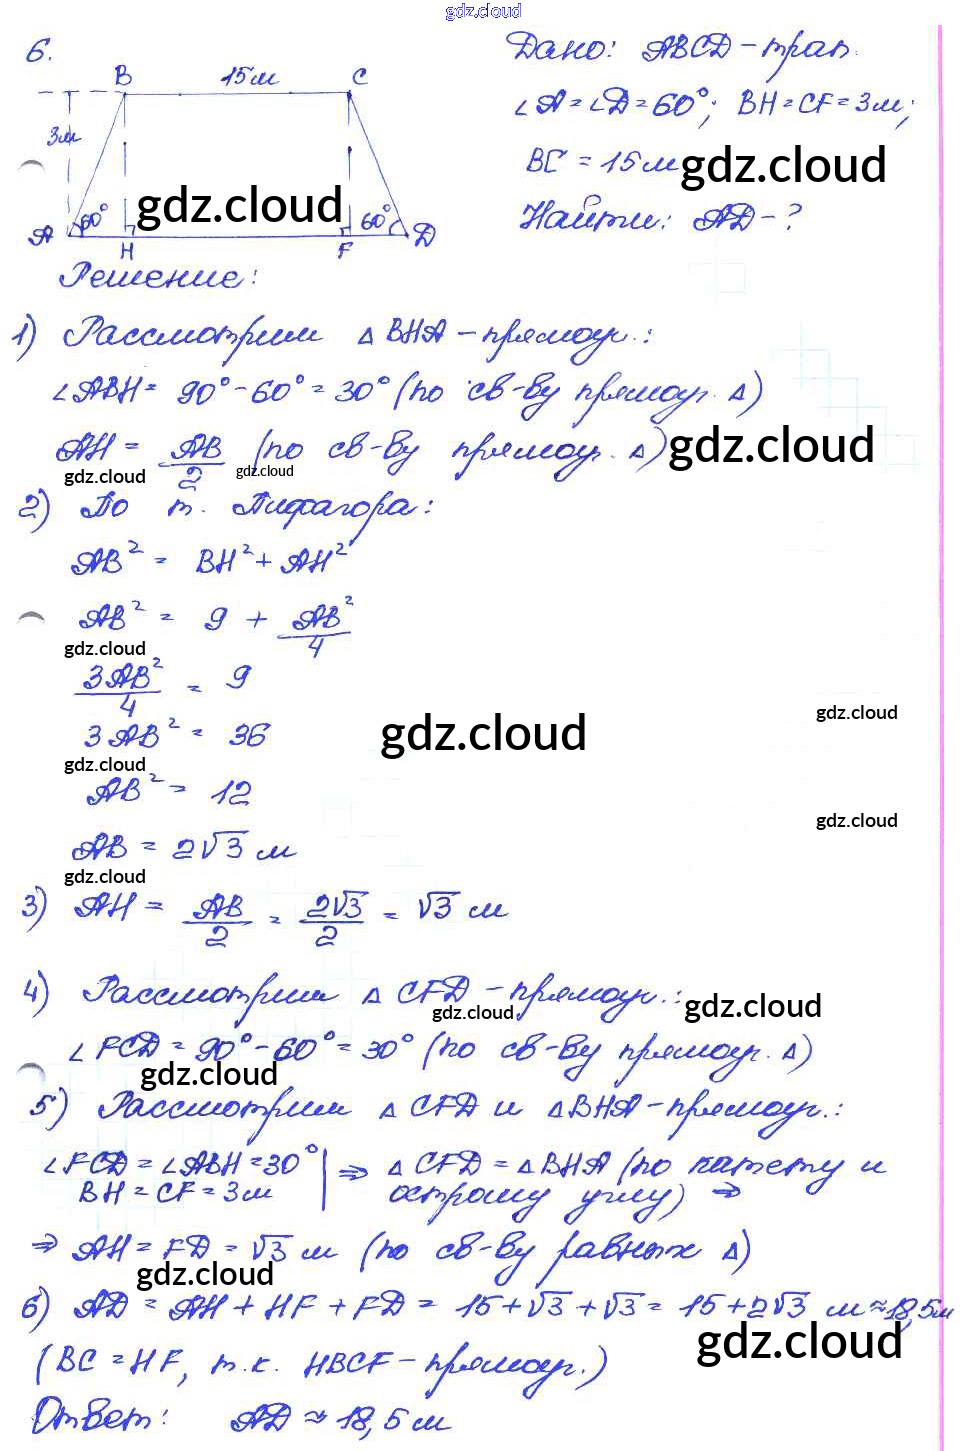 gdz.cloud
6.
B 15м C
3м
A 60° H F 60° D
Дано: ABCD - трап.
∠A = ∠D = 60°; BH = CF = 3м;
BC = 15м
gdz.cloud
gdz.cloud
Найти: AD - ?
Решение:
1) Рассмотрим △ BHA - прямоуг.:
∠ABH = 90° - 60° = 30° (по св-ву прямоуг. △)
AH = AB/2 (по св-ву прямоуг. △)
gdz.cloud
gdz.cloud
gdz.cloud
2) По т. Пифагора:
AB² = BH² + AH²
AB² = 9 + AB²/4
gdz.cloud
3AB²/4 = 9
gdz.cloud
3AB² = 36
gdz.cloud
gdz.cloud
AB² = 12
gdz.cloud
AB = 2√3 м
gdz.cloud
3) AH = AB/2 = 2√3/2 = √3 м
4) Рассмотрим △ CFD - прямоуг.:
gdz.cloud
gdz.cloud
∠FCD = 90° - 60° = 30° (по св-ву прямоуг. △)
gdz.cloud
5) Рассмотрим △ CFD и △BHA - прямоуг.:
∠FCD = ∠ABH = 30° | ⇒ △ CFD = △BHA (по катету и
BH = CF = 3м | острому углу) ⇒
⇒ AH = FD = √3 м (по св-ву равных △)
gdz.cloud
6) AD = AH + HF + FD = 15 + √3 + √3 = 15 + 2√3 м ≈ 18,5м
gdz.cloud
(BC = HF, т.к. HBCF - прямоуг.)
Ответ: AD ≈ 18,5м